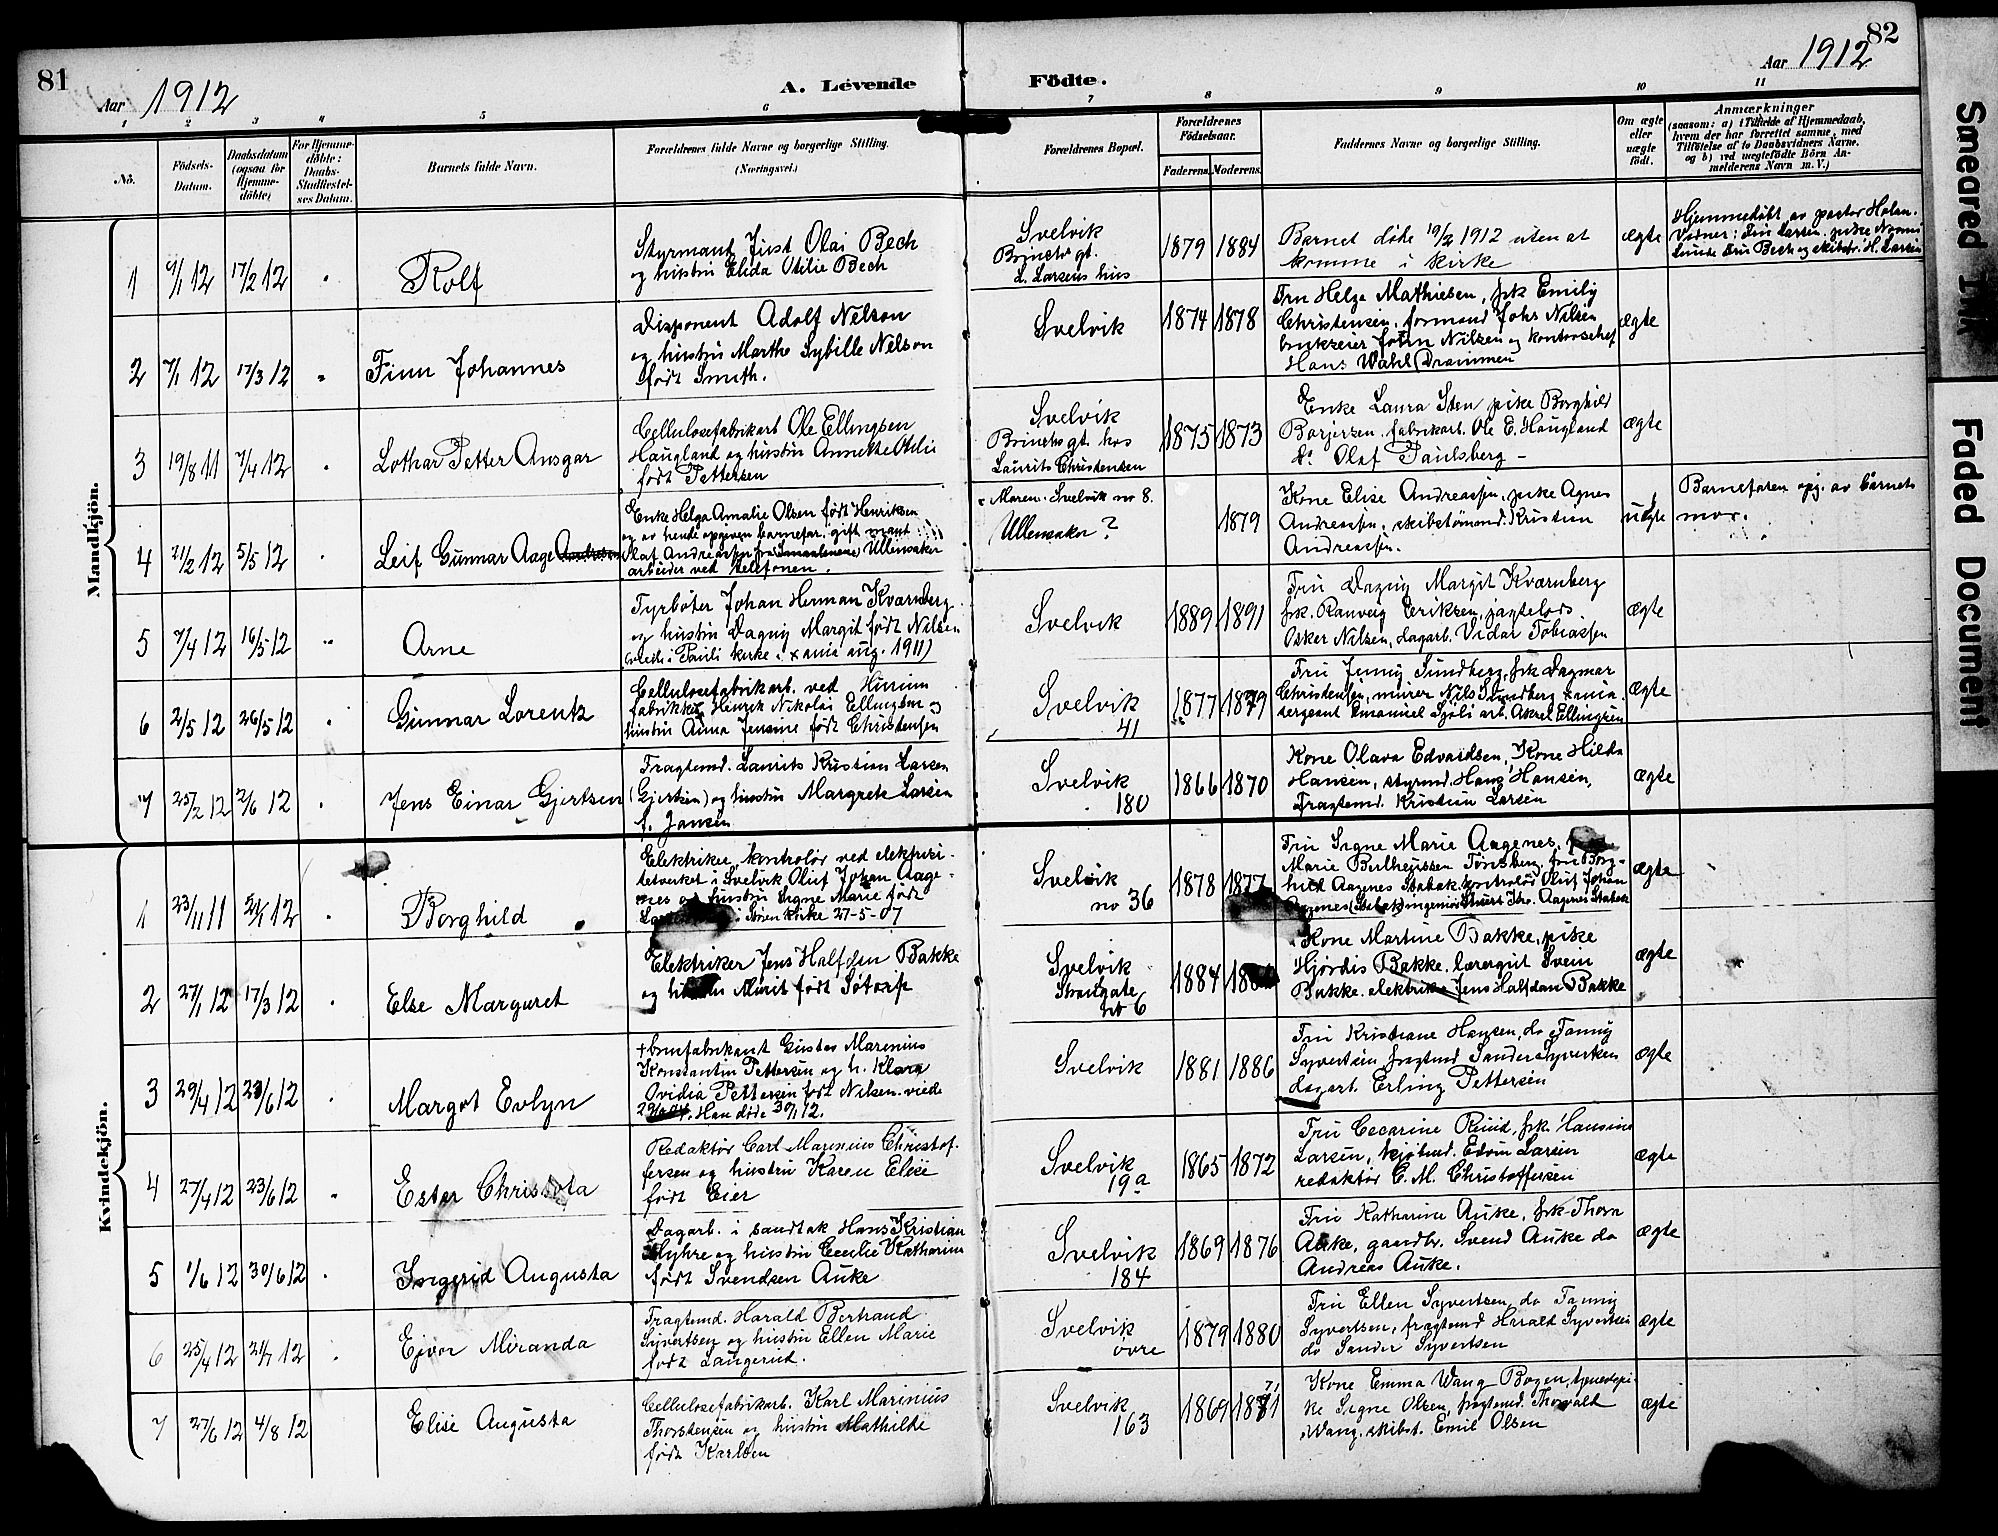 81
Aar 1912
A. Levende
Födte.
Aar 1912
82
1 2 3 4 5 6 7 8 9 10 11
No.
Födsels-Datum.
Daabsdatum (ogsaa for Hjemmedöbte)
For Hjemmedöbte: Daabs-Stadfæstelses Datum.
Barnets fulde Navn.
Forældrenes fulde Navne og borgerlige Stilling.
(Næringsvei.)
Forældrenes Bopæl.
Forældrenes Födselsaar.
Faderens. Moderens.
Faddernes Navne og borgerlige Stilling.
Om ægte eller uægte födt.
Anmærkninger
(saasom: a) i Tilfælde af Hjemmedaab,
hvem der har forrettet samme, med
Tilföielse af to Daabsvidners Navne,
og b) ved uægtefödte Börn Anmelderens Navn m.V.)
Mandkjön.
1 9/1 12 17/2 12 Rolf
Styrmand Just Olai Bech
og hustru Elida Otilie Bech
Svelvik
L. Larsens hus
1879 1884
Barnet döde 19/2 1912 uten at
komme i kirke
ægte
Hjemmedöbt av pastor Holm.
2 7/1 12 17/3 12 Finn Johannes
Disponent Adolf Nelson
og hustru Marthe Sybille Nelson
født Smith.
Svelvik
1874 1878
Fru Helga Mathiesen, frk Emily
Christensen, formand Johs Nilsen
brukseier John Nilsen og kontorchef
Hans Wahl (Drammen
ægte
3 19/8 11 7/4 12 Lothar Petter Ansgar
Cellulosefabrikarb Ole Ellingsen
Haugland og hustru Annette Otilie
født Pettersen
Svelvik
hos
Laurits Christensen
1875 1873
Enke Laura Sten pike Borghild
Børjersen. fabrikarb. Ole E. Haugland
Do Olaf Paulsberg -
ægte
4 21/2 12 5/5 12 Leif Gunnar Aage
Enke Helga Amalie Olsen født Henriksen
og av hende opgiven barnefar, gift mand
Olaf Andreassen Ullensaker
arbeider ved telefonen.
Moren. Svelvik no 8.
Ullensaker?
1879
Kone Elise Andreassen, pike Agnes
Andreassen, skibstømmd. Kristian
Andreassen.
uægte
Barnefaren opg. av barnets
mor.
5 7/4 12 16/5 12 Arne
Fyrbøter Johan Herman Kvarnberg
og hustru Dagny Margit født Nilsen
(viede i Pauli kirke i Xania aug. 1911)
Svelvik
1889 1891
Fru Dagny Margit Kvarnberg
frk. Ranveig Eriksen, jagtelods
Osker Nilsen, dagarb. Vidar Tobiassen
ægte
6 2/5 12 26/5 12 Gunnar Lorentz
Cellulosefabrikarb. ved Hurum
fabrikker Henrik Nikolai Ellingsen og
hustru Anna Jensine født Christensen
Svelvik
41
1877 1879
Fru Jenny Sundberg, frk Dagmar
Christensen, murer Nils Sundberg Xania,
sergeant Emanuel Sjøli arb. Aksel Ellingsen
ægte
7 25/2 12 2/6 12 Jens Einar Gjertsen
Fragtemd. Laurits Kristian Larsen
(Gjertsen) og hustru Margrete Larsen
f. Jansen
Svelvik
180
1866 1870
Kone Olava Edvardsen, Kone Hilda
Hansen, styrmd. Hans Hansen,
Fragtemd. Kristian Larsen
ægte
Kvindekjön.
1 23/11 11 12 Borghild
Elektriker, kontrolør ved elektrici-
tetverket i Svelvik Oluf Johan Aage-
nes og hustru Signe Marie født
kirke 27-5-07
Svelvik
no 36
1878 1877
Fru Signe Marie Aagenes,
Marie Bulheussen Tønsberg, fru Borg-
hild Aagenes Stabæk, kontrolør Oluf Johan
Aagenes
ægte
2 27/1 12 17/3 12 Else Margaret
Elektriker Jens Halfdan Bakke
og hustru Marit født Søtorp
Svelvik
Strandgate
no 6
1884
Kone Martine Bakke, pike
Hjørdis Bakke, lærergut Svein
Bakke, elektriker Jens Halfdan Bakke
ægte
3 29/4 12 23/6 12 Margot Evlyn
Brusfabrikant Gustav Marinius
Konstantin Pettersen og h. Klara
Ovidia Pettersen født Nilsen. viede
Han döde 30/1 12.
Svelvik
1881 1886
Fru Kristiane Hansen, do Fanny
Syvertsen fragtmd Sander Syvertsen
dagarb. Erling Pettersen
ægte
4 27/4 12 23/6 12 Ester Christofa
Redaktør Carl Marinius Christof-
fersen og hustru Karen Elise
født Eier
Svelvik
19a
1865 1872
Fru Cecarine Ruud, frk. Hansine
Larsen, kjøbmd. Edvin Larsen
redaktør C. M. Christoffersen
ægte
5 1/6 12 30/6 12 Ingerid Augusta
Dagarb. i sandtak Hans Kristian
Myhre og hustru Cecilie Katharina
født Svendsen Auke
Svelvik
184
1869 1876
Fru Katharine Auke, frk Thora
Auke, gaardbr. Svend Auke do
Andreas Auke.
ægte
6 25/4 12 21/7 12 Ejvor Miranda
Fragtemd. Harald Bertrand
Syvertsen og hustru Ellen Marie
født Laugerud.
Svelvik
övre
1879 1880
Fru Ellen Syvertsen, do Fanny
Syvertsen, fragtemd Harald Syvertsen
do Sander Syvertsen
ægte
7 27/6 12 4/8 12 Elise Augusta
Cellulosefabrikarb. Karl Marinius
Thorstensen og hustru Mathilde
født Karlsen
Svelvik
163
1869 1871
Kone Emma Wang Bogen, tjenestepi-
ke Signe Olsen, fragtemd. Thorvald
Wang, skibst. Emil Olsen
ægte
Smeared Ink
Faded Document